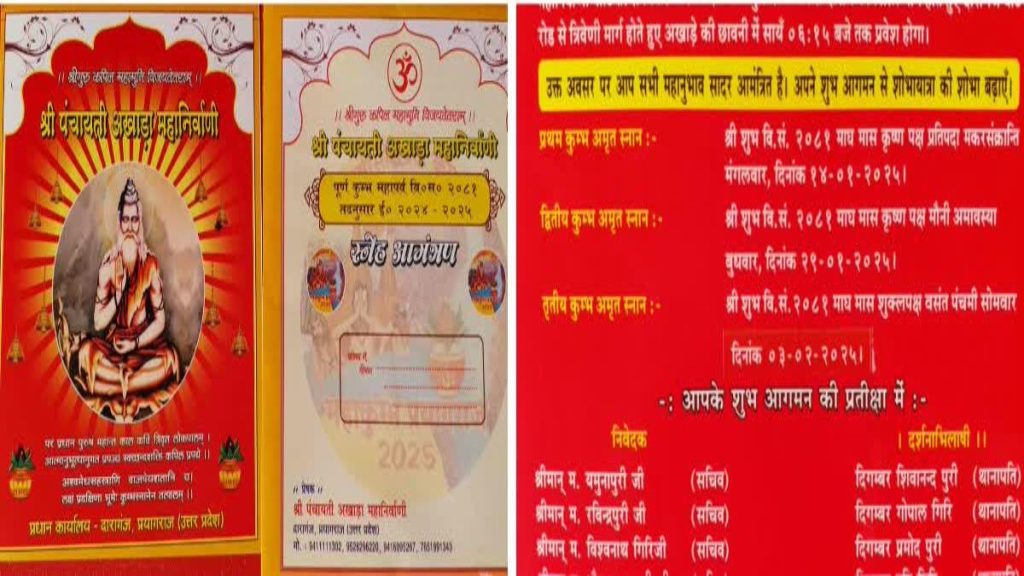 ।। श्रीगुरु कपिल महामुनि विजयतेतराम् ।।
श्री पंचायती अखाड़ा महानिर्वाणी
अश्वमेधसहस्त्राणि वाजपेयशतानि च।
लक्षं प्रदक्षिणा भूमेः कुम्भस्नानेन तत्फलम् ।।
प्रधान कार्यालय - दारागंज, प्रयागराज (उत्तर प्रदेश)
ॐ
।। श्रीगुरु कपिल महामुनि विजयतेतराम् ।।
श्री पंचायती अखाड़ा महानिर्वाणी
पूर्ण कुम्भ महापर्व वि०स० २०८१
तद्नुसार ई० २०२४ - २०२५
स्नेह आमंत्रण
2025
।। प्रेषक ।।
श्री पंचायती अखाड़ा महानिर्वाणी
दारागंज, प्रयागराज (उत्तर प्रदेश)
मो. - 9411111302, 9528296220, 9416995267, 7651991343
रोड से त्रिवेणी मार्ग होते हुए अखाड़े की छावनी में सायँ ०६:१५ बजे तक प्रवेश होगा।
उक्त अवसर पर आप सभी महानुभाव सादर आमंत्रित है। अपने शुभ आगमन से शोभायात्रा की शोभा बढ़ाएँ।
प्रथम कुम्भ अमृत स्नान :- श्री शुभ वि.सं. २०८१ माघ मास कृष्ण पक्ष प्रतिपदा मकरसंक्रान्ति
मंगलवार, दिनांक १४-०१-२०२५।
द्वितीय कुम्भ अमृत स्नान :- श्री शुभ वि.सं. २०८१ माघ मास कृष्ण पक्ष मौनी अमावस्या
बुधवार, दिनांक २९-०१-२०२५।
तृतीय कुम्भ अमृत स्नान :- श्री शुभ वि.सं. २०८१ माघ मास शुक्लपक्ष वसंत पंचमी सोमवार
दिनांक ०३-०२-२०२५।
-: आपके शुभ आगमन की प्रतीक्षा में :-
निवेदक । दर्शनाभिलाषी ।।
श्रीमान् म. यमुनापुरी जी (सचिव) दिगम्बर शिवानन्द पुरी (थानापति)
श्रीमान् म. रविन्द्रपुरी जी (सचिव) दिगम्बर गोपाल गिरि (थानापति)
श्रीमान् म. विश्वनाथ गिरिजी (सचिव) दिगम्बर प्रमोद पुरी (थानापति)